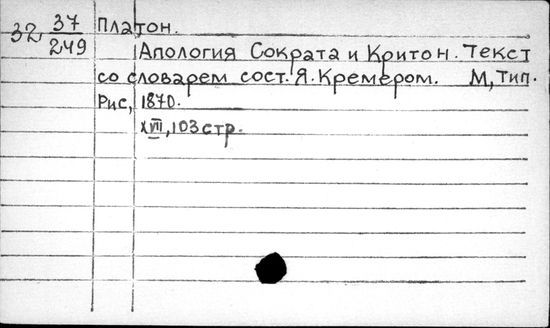 32 37/249 Платон.
Апология Сократа и Критон. Текст
со словарем сост. Я. Кремером. М, Тип.
Рис, 1870.
XVII, 103 стр.